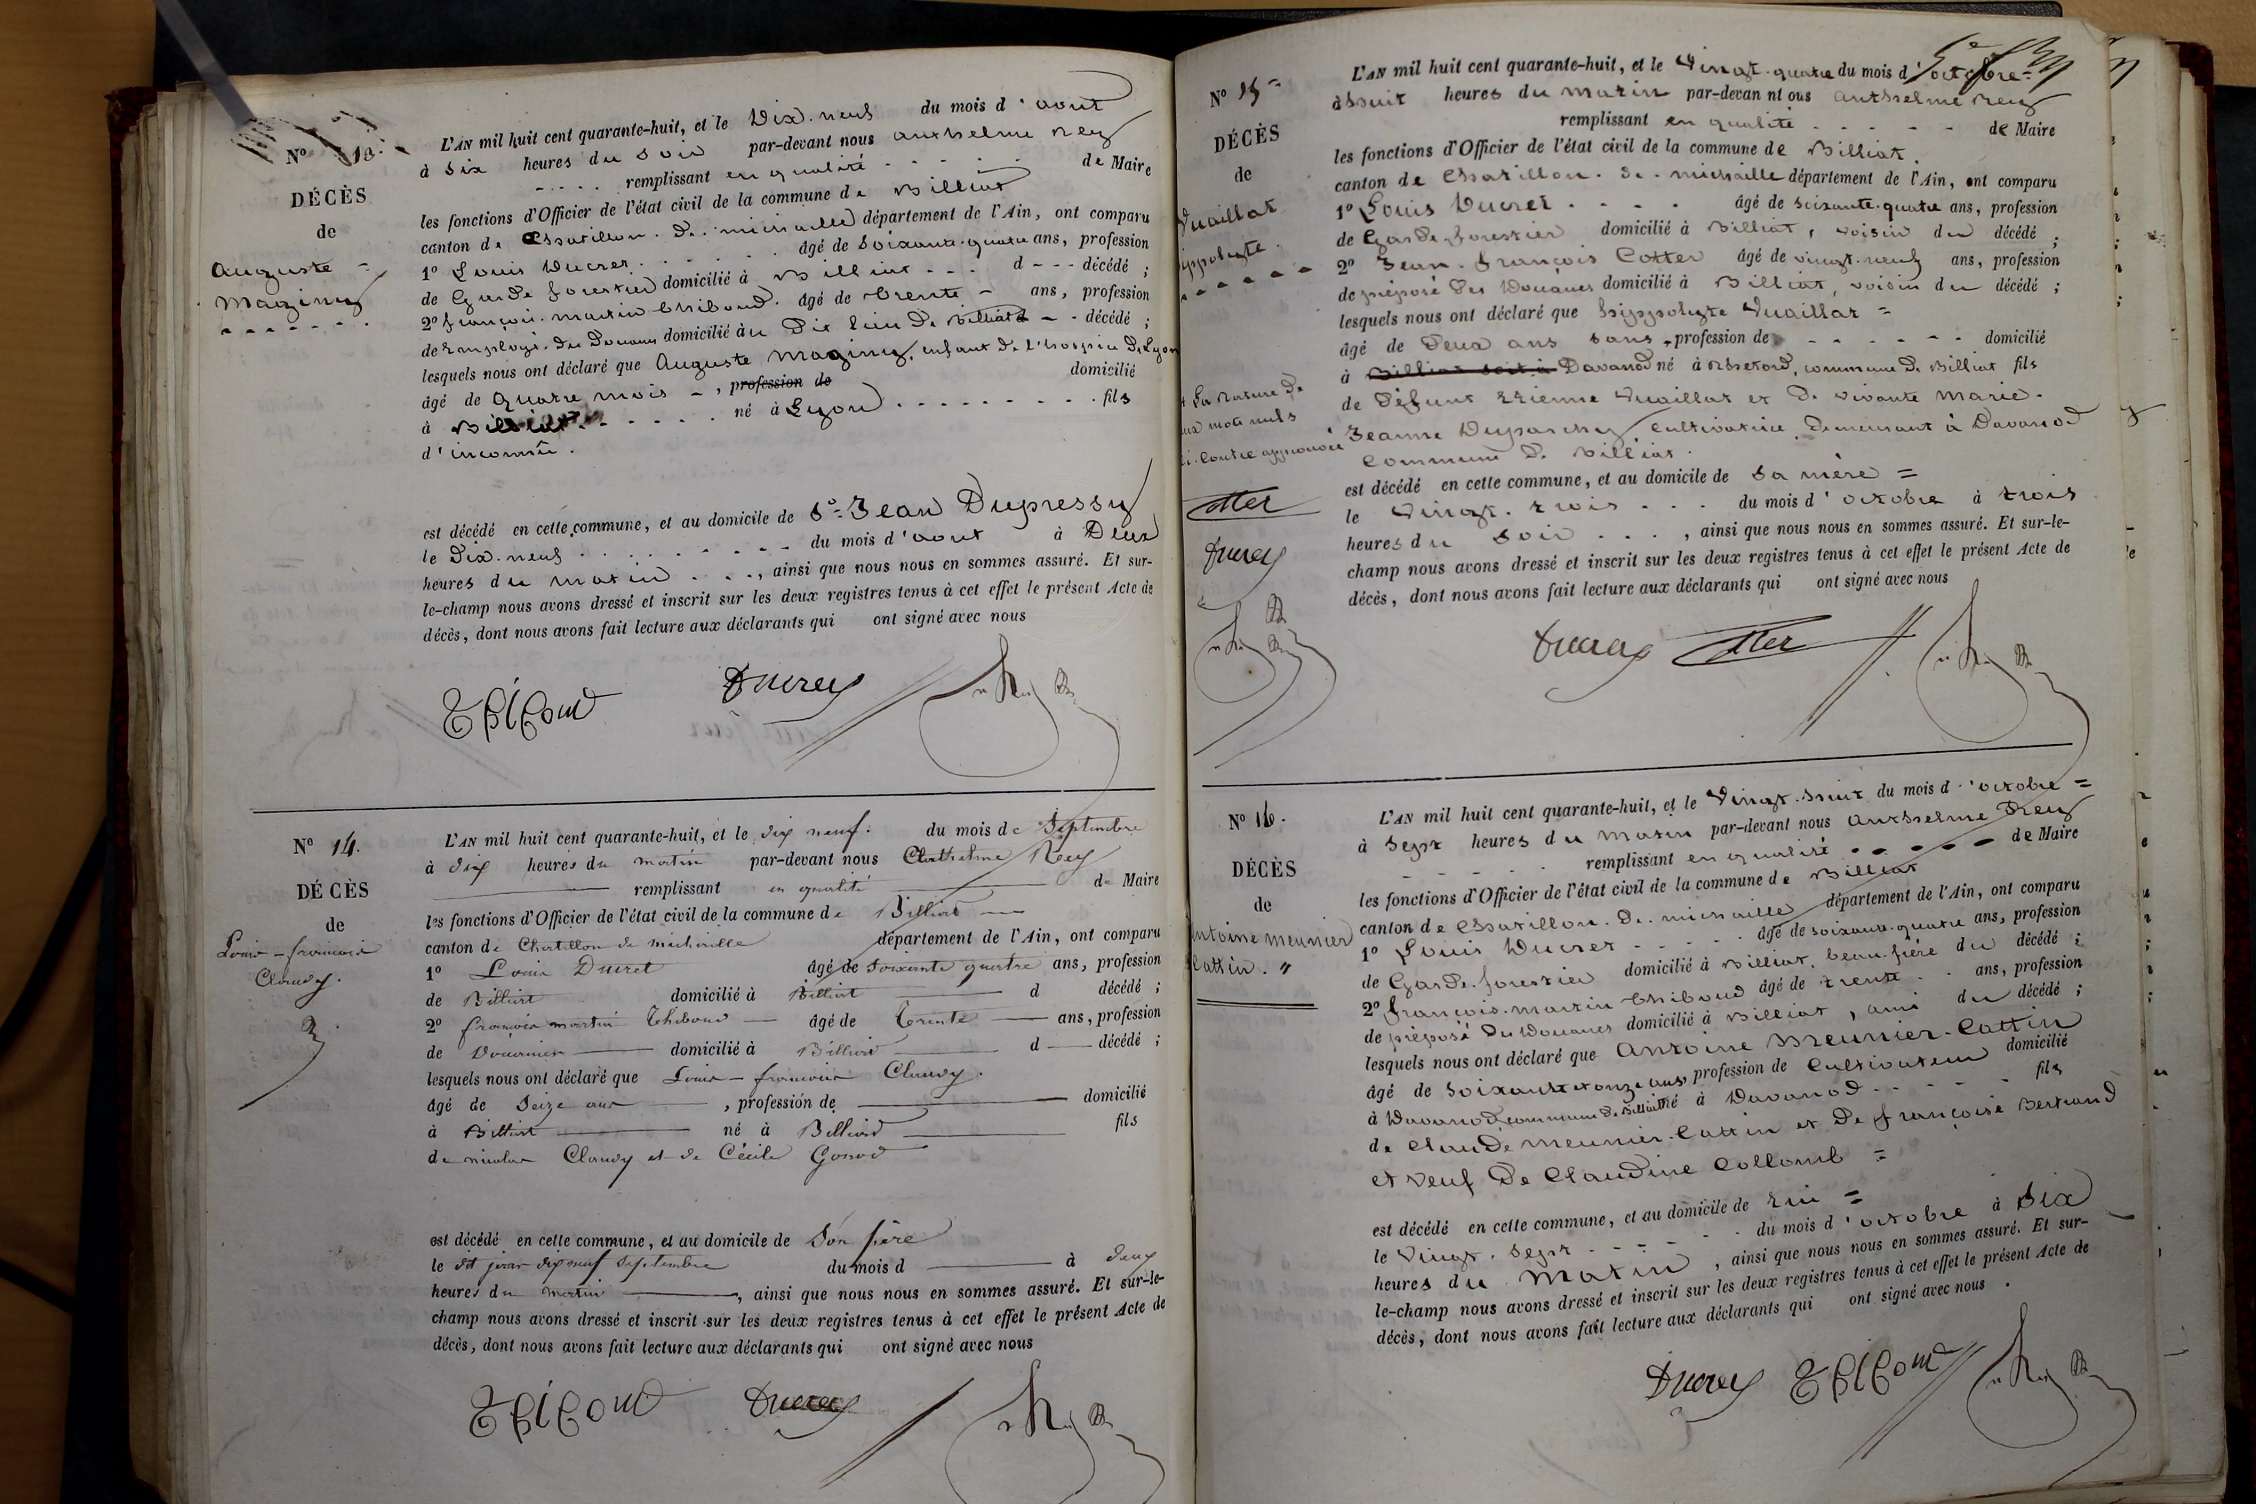 N° 13.
DÉCÈS
de
Auguste =
Maginy
L'AN mil huit cent quarante-huit, et le Dix-neuf du mois d'aout
à six heures du soir par-devant nous anthelme Rey
remplissant en qualité de Maire
les fonctions d'Officier de l'état civil de la commune de Billiat
canton de Chatillon-de-michaille département de l'Ain, ont comparu
1° Louis Ducret âgé de soixante-quatre ans, profession
de Garde forestier domicilié à Billiat d décédé ;
2° françois-martin thiboud âgé de trente - ans, profession
de Employé des Douanes domicilié au Dit lieu de Billiat d décédé ;
lesquels nous ont déclaré que Auguste Maginy, enfant de l'hospice De Lyon
âgé de quatre mois -, profession de domicilié
à Billiat né à Lyon fils
d'inconnu.
est décédé en cette commune, et au domicile de Sr Jean Dupressy
le Dix-neuf du mois d'aout à Deux
heures du matin, ainsi que nous nous en sommes assuré. Et sur-
le-champ nous avons dressé et inscrit sur les deux registres tenus à cet effet le présent Acte de
décès, dont nous avons fait lecture aux déclarants qui ont signé avec nous
Thiboud Ducret
N° 14.
DÉCÈS
de
Louis-françois
Claudy.
L'AN mil huit cent quarante-huit, et le dix neuf. du mois de Septembre
à dix heures du matin par-devant nous Anthelme Rey
remplissant en qualité de Maire
les fonctions d'Officier de l'état civil de la commune de Billiat
canton de Chatillon de michaille département de l'Ain, ont comparu
1° Louis Ducret âgé de soixante quatre ans, profession
de Billiat domicilié à Billiat d décédé ;
2° françois martin Thiboud âgé de trente ans, profession
de Douanier domicilié à Billiat d décédé ;
lesquels nous ont déclaré que Louis-françois Claudy.
âgé de Seize ans, profession de domicilié
à Billiat né à Billiat fils
de nicolas Claudy et de Cécile Gonod
est décédé en cette commune, et au domicile de Son père
le dit jour dix neuf septembre du mois d à deux
heures du matin, ainsi que nous nous en sommes assuré. Et sur-le-
champ nous avons dressé et inscrit sur les deux registres tenus à cet effet le présent Acte de
décès, dont nous avons fait lecture aux déclarants qui ont signé avec nous
Thiboud Ducret
N° 15
DÉCÈS
de
Vuaillat
hippolyte.
L'AN mil huit cent quarante-huit, et le Vingt-quatre du mois d'octobre
à huit heures du matin par-devan nt ous anthelme Rey
remplissant en qualité de Maire
les fonctions d'Officier de l'état civil de la commune de Billiat.
canton de Chatillon-de-michaille département de l'Ain, ont comparu
1° Louis Ducret âgé de soixante-quatre ans, profession
de Garde-forestier domicilié à Billiat, voisin du décédé ;
2° Jean-françois Cotter âgé de vingt-neuf ans, profession
de préposé Des Douanes domicilié à Billiat, voisin du décédé ;
lesquels nous ont déclaré que hippolyte Vuaillat =
âgé de Deux ans sans, profession de domicilié
à Billiat soit à Davanod né à , commune de Billiat fils
de Défunt Etienne Vuaillat et de vivante Marie-
Jeanne Duparchy cultivatrice demeurant à Davanod
commune de Billiat.
La rature de
deux mots nuls
ci-contre approuvée
Cotter
Ducret
est décédé en cette commune, et au domicile de sa mère =
le vingt-trois du mois d'octobre à trois
heures du soir, ainsi que nous nous en sommes assuré. Et sur-le-
champ nous avons dressé et inscrit sur les deux registres tenus à cet effet le présent Acte de
décès, dont nous avons fait lecture aux déclarants qui ont signé avec nous
Ducret Cotter
N° 16.
DÉCÈS
de
Antoine Meunier
Cattin. "
L'AN mil huit cent quarante-huit, et le vingt-huit du mois d'octobre =
à Sept heures du matin par-devant nous Anthelme Rey
remplissant en qualité de Maire
les fonctions d'Officier de l'état civil de la commune de Billiat
canton de Chatillon-De-michaille département de l'Ain, ont comparu
1° Louis Ducret âgé de soixante-quatre ans, profession
de Garde-forestier domicilié à Billiat, beau-frère du décédé ;
2° françois-martin thiboud âgé de trente ans, profession
de préposé Des Douanes domicilié à Billiat, ami du décédé ;
lesquels nous ont déclaré que Antoine Meunier-Cattin
âgé de soixante et onze ans, profession de Cultivateur domicilié
à Davanod commune de Billiat né à Davanod fils
de Claude Meunier-Cattin et De françoise Bertrand
et veuf De Claudine Collomb =
est décédé en cette commune, et au domicile de lui =
le vingt-sept du mois d'octobre à Six
heures du Matin, ainsi que nous nous en sommes assuré. Et sur-
le-champ nous avons dressé et inscrit sur les deux registres tenus à cet effet le présent Acte de
décès, dont nous avons fait lecture aux déclarants qui ont signé avec nous.
Ducret Thiboud